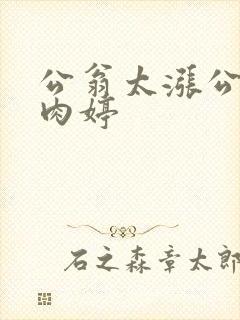 公翁太漲公
肉婷
石之森章太郎